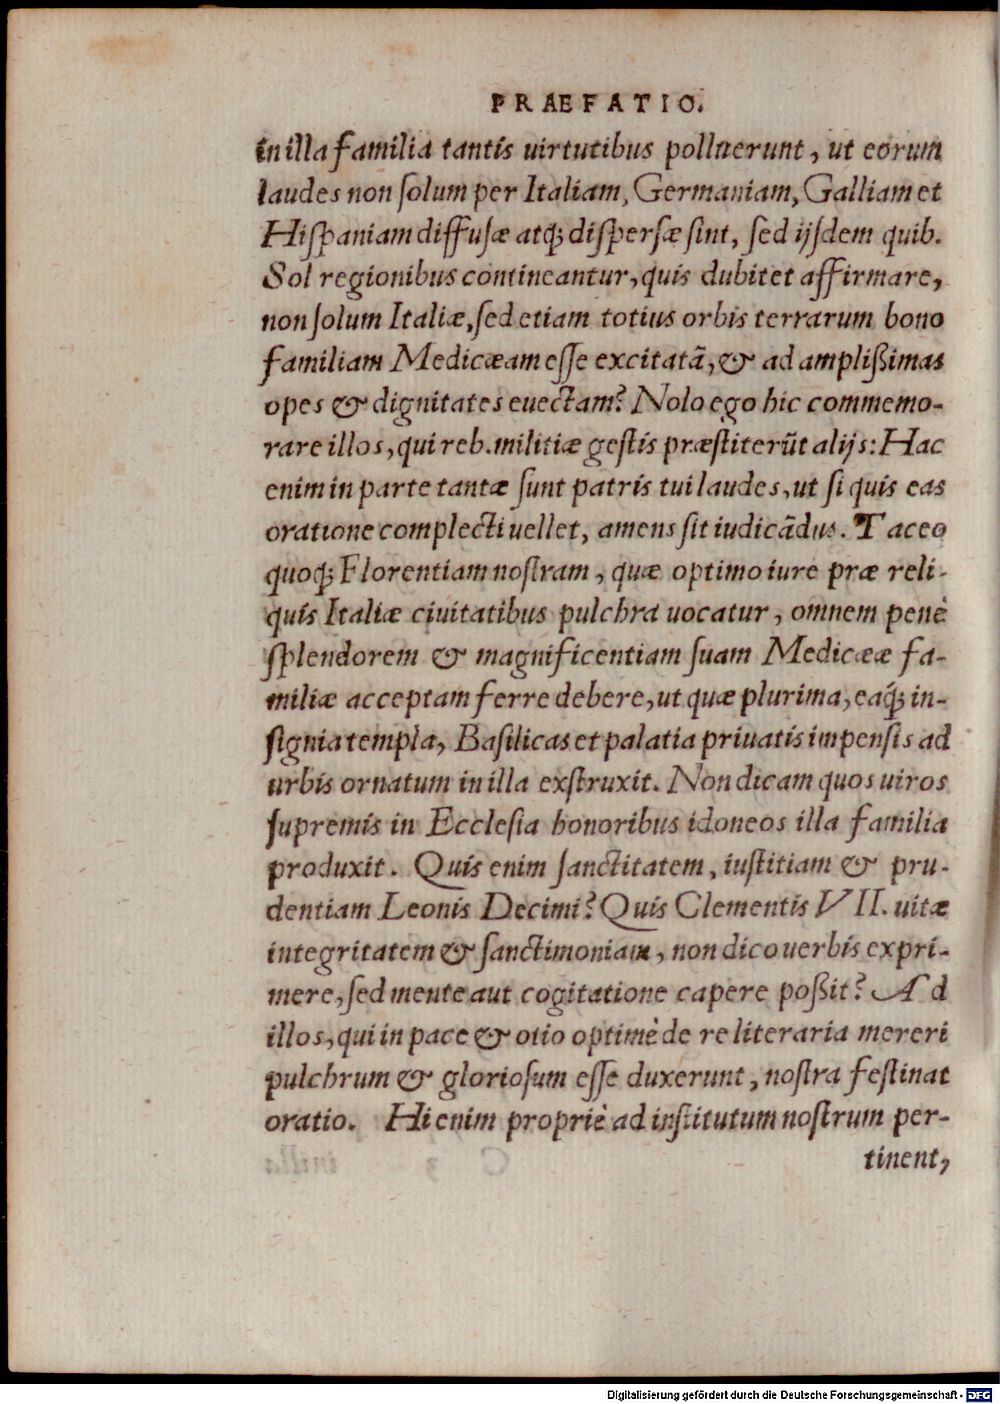 PRAEFATIO.
in illa familia tantis uirtutibus polluerunt, ut eorum
laudes non ſolum per Italiam, Germaniam, Galliam et
Hiſpaniam diffuſæ atq́; diſperſæ ſint, ſed ijſdem quib.
Sol regionibus contineantur, quis dubitet affirmare,
non ſolum Italiæ, ſed etiam totius orbis terrarum bono
familiam Medicæam eſſe excitatã, & ad ampliſsimas
opes & dignitates euectam? Nolo ego hic commemo-
rare illos, qui reb. militiæ geſtis præſtiterũt alijs: Hac
enim in parte tantæ ſunt patris tui laudes, ut ſi quis eas
oratione complecti uellet, amens ſit iudicãdus. Taceo
quoq́; Florentiam noſtram, quæ optimo iure præ reli-
quis Italiæ ciuitatibus pulchra uocatur, omnem penè
ſplendorem & magnificentiam ſuam Medicææ fa-
miliæ acceptam ferre debere, ut quæ plurima, eaq́; in-
ſignia templa, Baſilicas et palatia priuatis impenſis ad
urbis ornatum in illa exſtruxit. Non dicam quos uiros
ſupremis in Eccleſia honoribus idoneos illa familia
produxit. Quis enim ſanctitatem, iuſtitiam & pru-
dentiam Leonis Decimi? Quis Clementis VII. uitæ
integritatem & ſanctimoniam, non dico uerbis expri-
mere, ſed mente aut cogitatione capere poſsit? Ad
illos, qui in pace & otio optimè de re literaria mereri
pulchrum & glorioſum eſſe duxerunt, noſtra feſtinat
oratio. Hi enim propriè ad inſtitutum noſtrum per-
tinent,
Digitalisierung gefördert durch die Deutsche Forschungsgemeinschaft - DFG